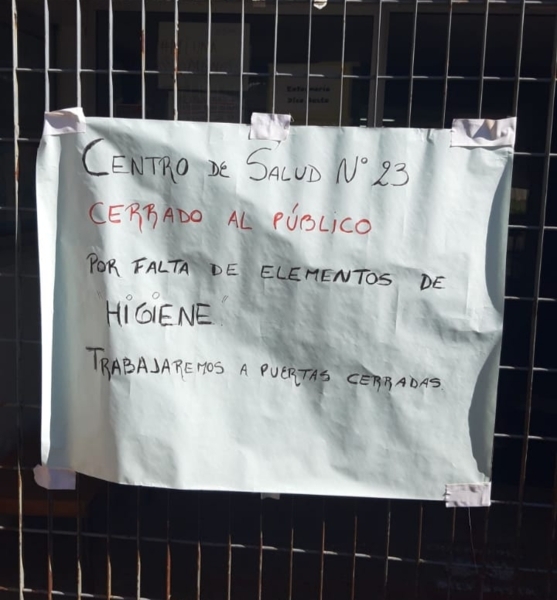 CENTRO DE SALUD N° 23
CERRADO AL PÚBLICO
POR FALTA DE ELEMENTOS DE
"HIGIENE"
TRABAJAREMOS A PUERTAS CERRADAS